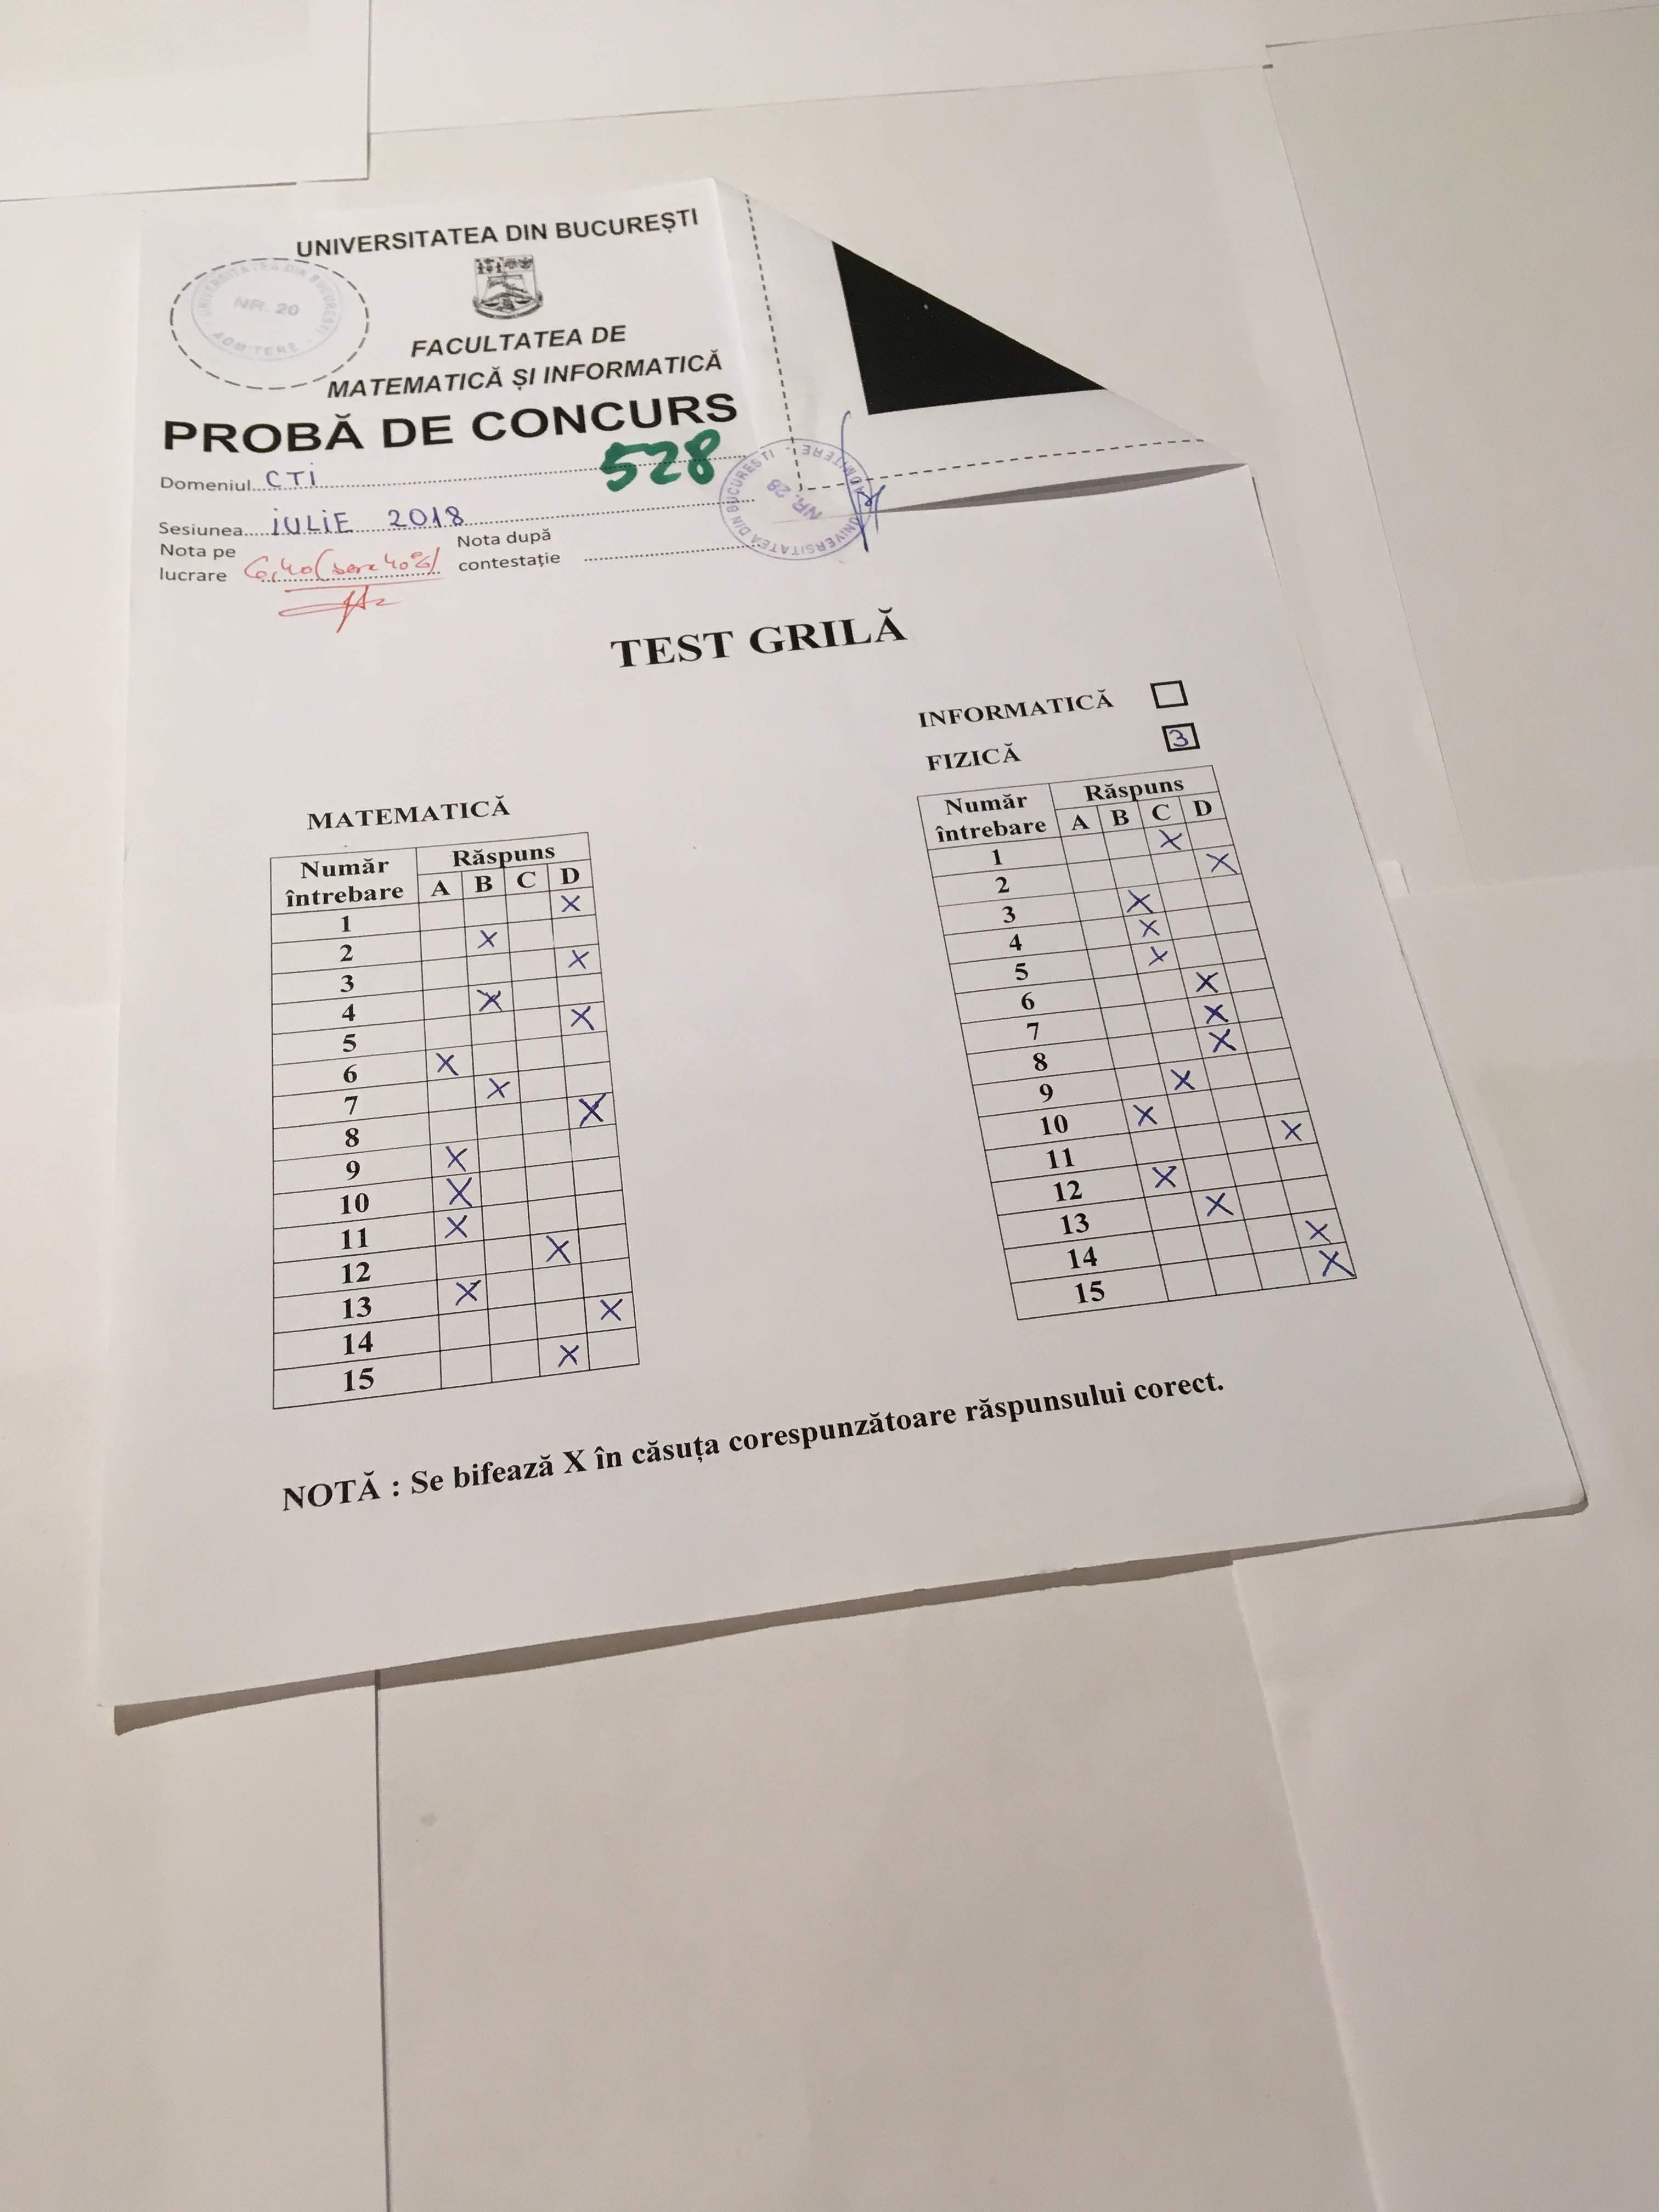 UNIVERSITATEA DIN BUCUREȘTI
UNIVERSITATEA DIN BUCUREȘTI
NR. 20
ADMITERE
FACULTATEA DE
MATEMATICĂ ȘI INFORMATICĂ
PROBĂ DE CONCURS
528
Domeniul CTI
Sesiunea IULIE 2018
Nota pe
lucrare 6,40
Nota după
contestație
UNIVERSITATEA DIN BUCURESTI - ADMITERE -
NR. 28
TEST GRILĂ
INFORMATICĂ
FIZICĂ 3
MATEMATICĂ
Număr
întrebare
Răspuns
A B C D
1 X
2 X
3 X
4 X
5 X
6 X
7 X
8 X
9 X
10 X
11 X
12 X
13 X
14 X
15 X
Număr
întrebare
Răspuns
A B C D
1 X
2 X
3 X
4 X
5 X
6 X
7 X
8 X
9 X
10 X
11 X
12 X
13 X
14 X
15 X
NOTĂ : Se bifează X în căsuța corespunzătoare răspunsului corect.